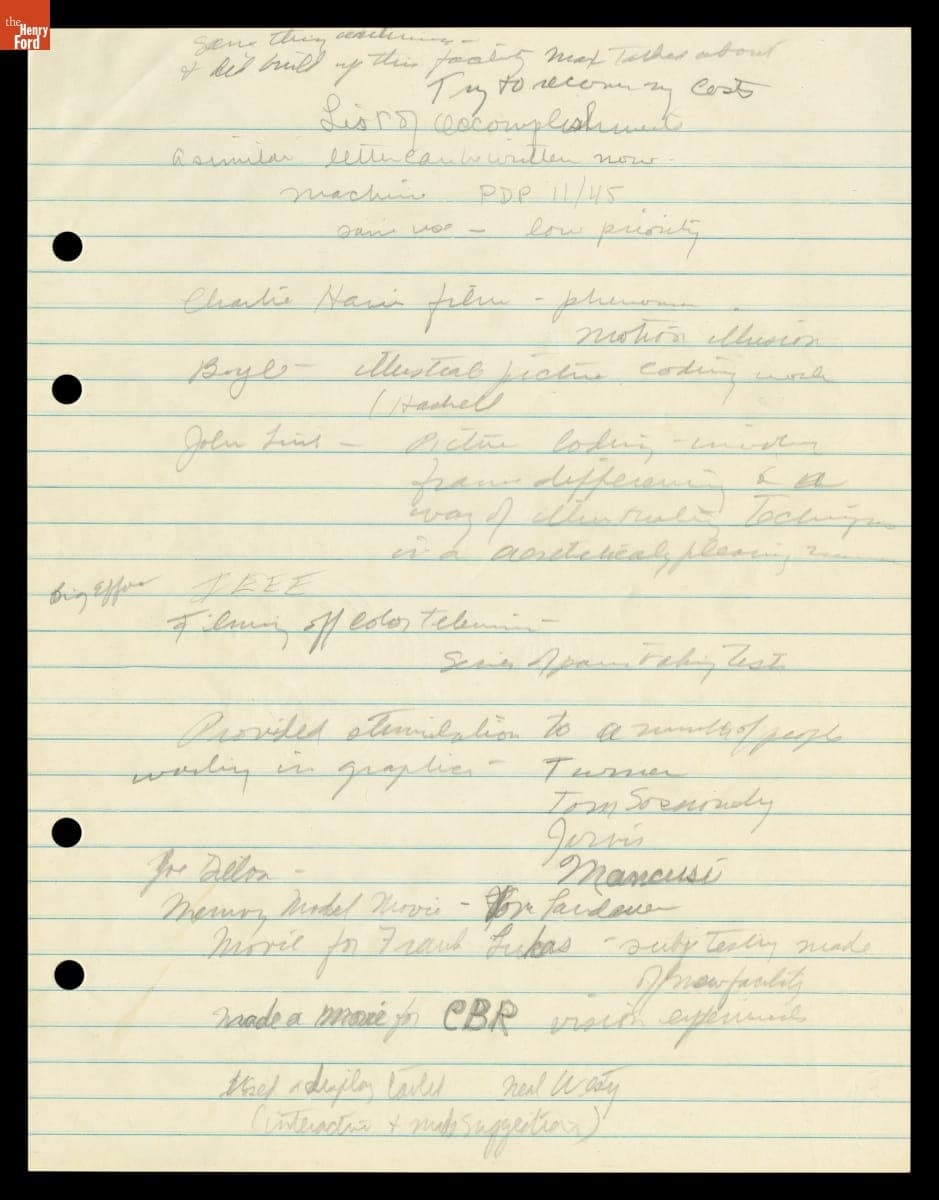 the Henry Ford
& did build up this facility Max talked about
Try to recover my costs
List of accomplishments
a similar letter can be written now -
machine PDP 11/45
same use - low priority
Charlie Harris film - phenomena
motion illusion
Boyle - illustrate picture coding work
(Haskell
John - Picture Coding - involving
frame differencing & a
way of illustrating Technique
in a aesthetically pleasing
Big Effort IEEE
Filming off color television -
Series of painstaking Tests
Provided stimulation to a number of people
working in graphics - Turner
Tom
Jervis
Joe Dillon - Mancusi
Memory Model Movie - Tom Landauer
Movie for Frank Lukas - subj testing made
of new facility
made a movie for CBR vision experiments
Used a display tablet Neal
(interactive & made suggestions)